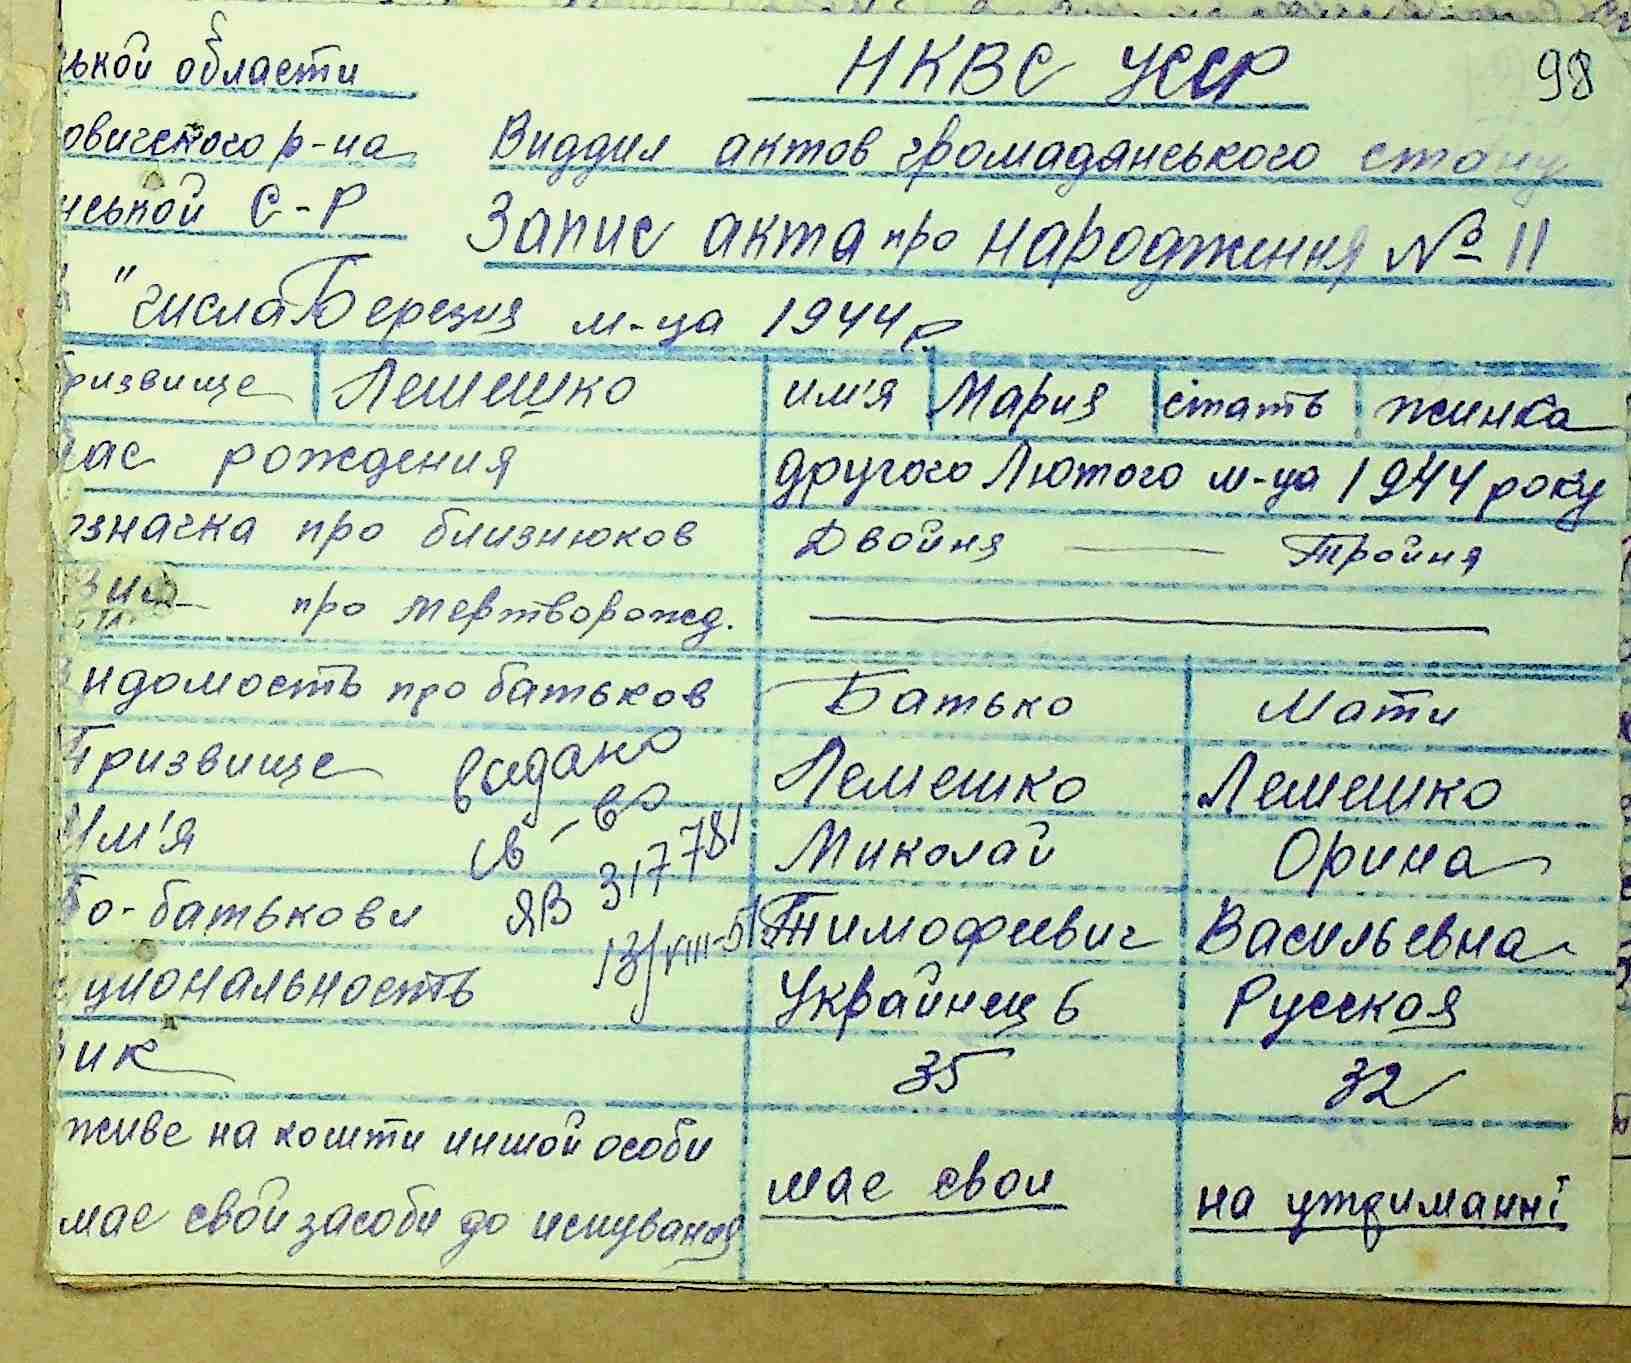 ькой области
НКВС УССР
98
овичского р-на
Виддил актов громадянського стану
нськой С-Р
Запис акта про народження № 11
" числа Березня м-ца 1944 р.
ризвище Лемешко им'я Мария стать жинка
час рождения другого Лютого м-ца 1944 року
означка про близнюков Двойня — Тройня
про мертворожд. —
идомость про батьков Батько Мати
Призвище Лемешко Лемешко
видано
св-во
Им'я Миколай Орина
ЯВ 317781
По-батькови Тимофеевич Васильевна
13/VIII-5
циональность Украйнець Русская
ик 35 32
живе на кошти иншой особи
мае свои на утриманні
мае свои засоби до иснування